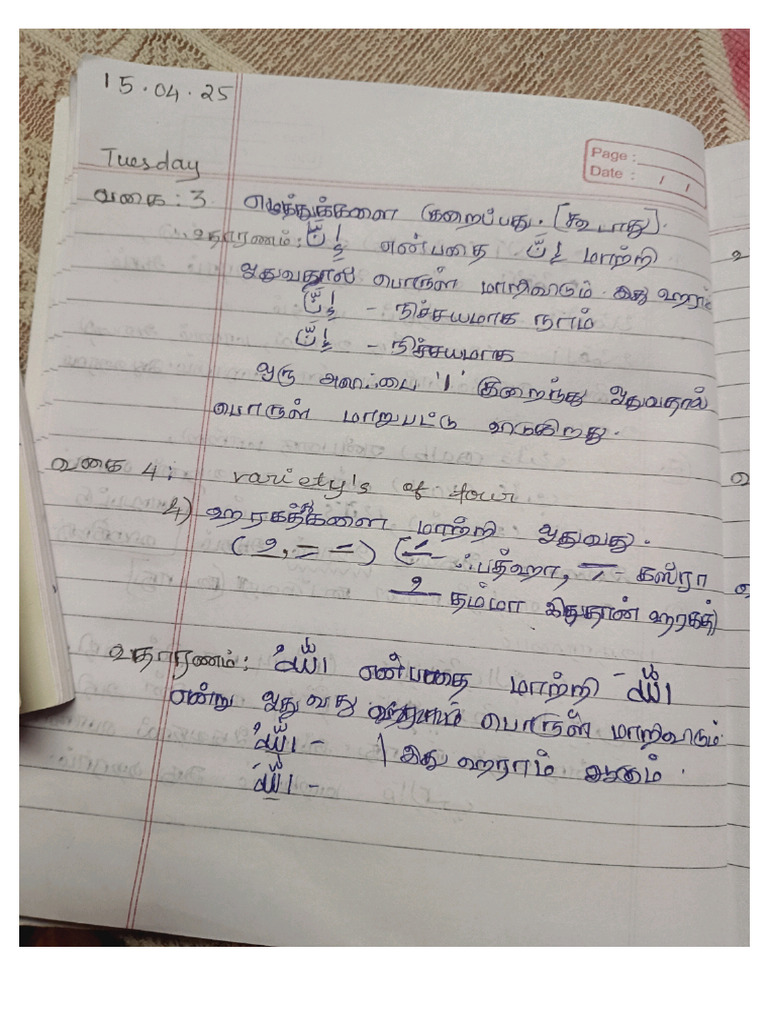 15.04.25
Page :
Date : / /
Tuesday
வகை : 3 எழுத்துக்களை குறைப்பது. [கூடாது].
உதாரணம் : إِنَّا என்பதை إِنَّ மாற்றி
ஓதுவதால் பொருள் மாறிவிடும். இது ஹராம்
إِنَّا - நிச்சயமாக நாம்
إِنَّ - நிச்சயமாக
ஒரு அலிஃபை 'ا' குறைந்து ஓதுவதால்
பொருள் மாறுபட்டு விடுகிறது.
வகை 4 : variety's of four
4) ஹரகத்களை மாற்றி ஓதுவது.
ஃபத்ஹா, கஸ்ரா
தம்மா இதுதான் ஹரகத்)
உதாரணம் : என்பதை மாற்றி
என்று ஓதுவது பொருள் மாறிவிடும்
இது ஹராம் ஆகும்.